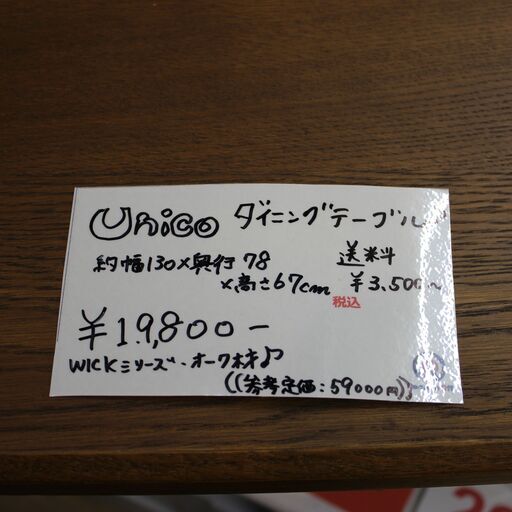 Unico ダイニングテーブル
約幅130×奥行78
×高さ67cm
送料
¥3,500〜
税込
¥19,800-
WICKシリーズ・オーク材♪
((参考定価:59000円))